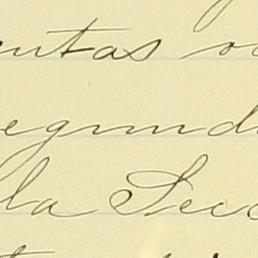 entas
egund
la Sec